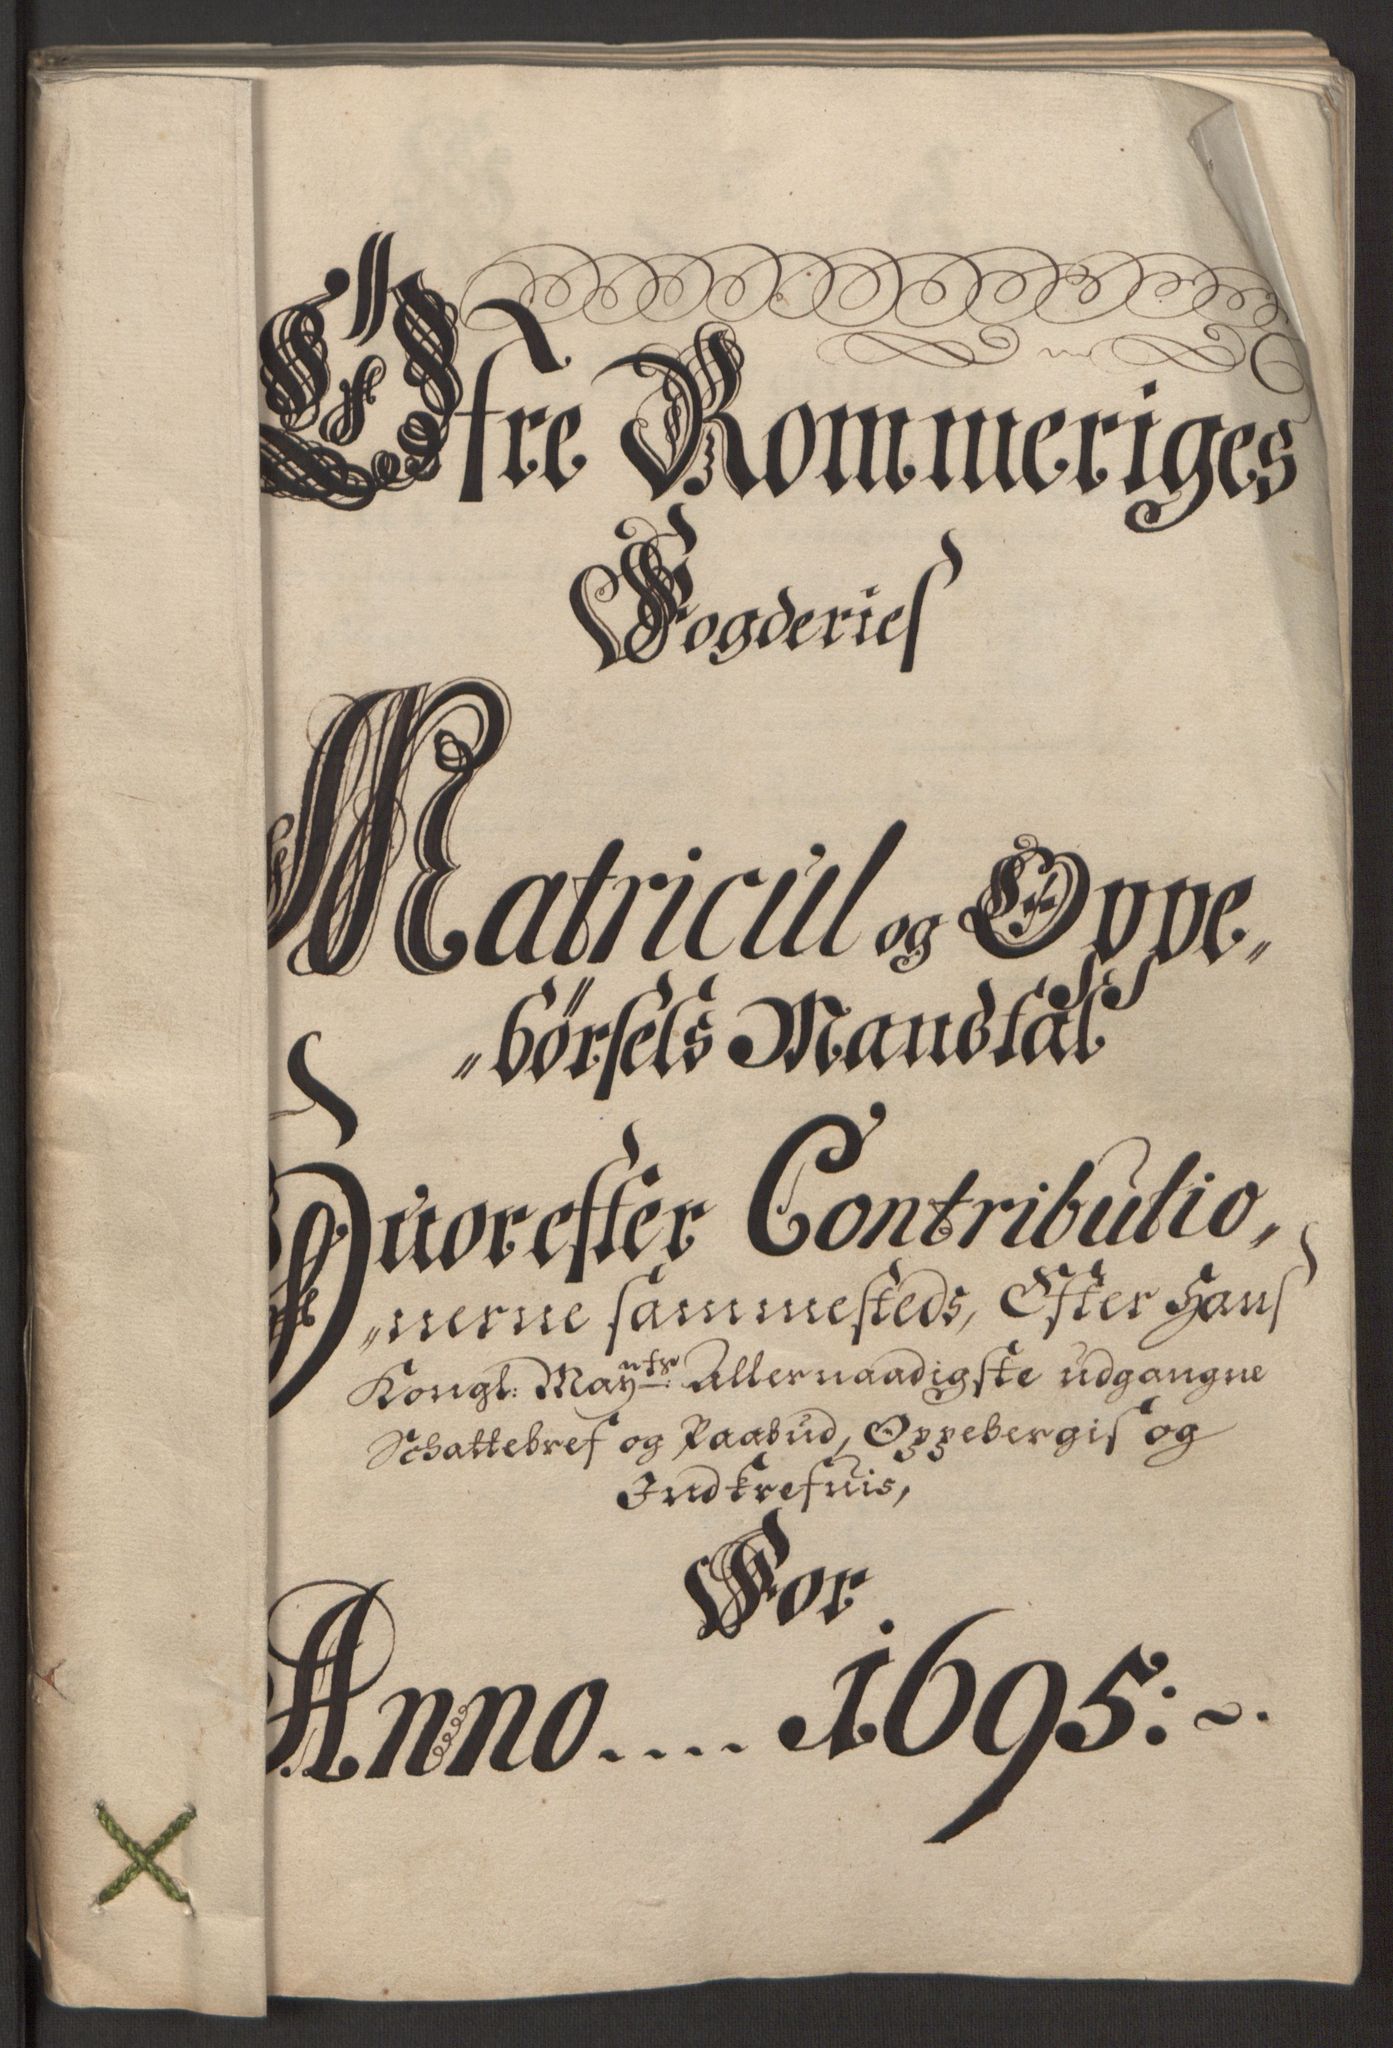 Öfre Rommeriges
Fogderies
Matricul og Oppe„
„börsels Mandtal
Huorefter Contributio„
„nerne sammesteds, Efter Hans
Kongl: Mayntz: Allernaadigste udgangne
Schattebref og Paabud, Oppebergis og
Indkrefuis,
For
Anno.... 1695:~.